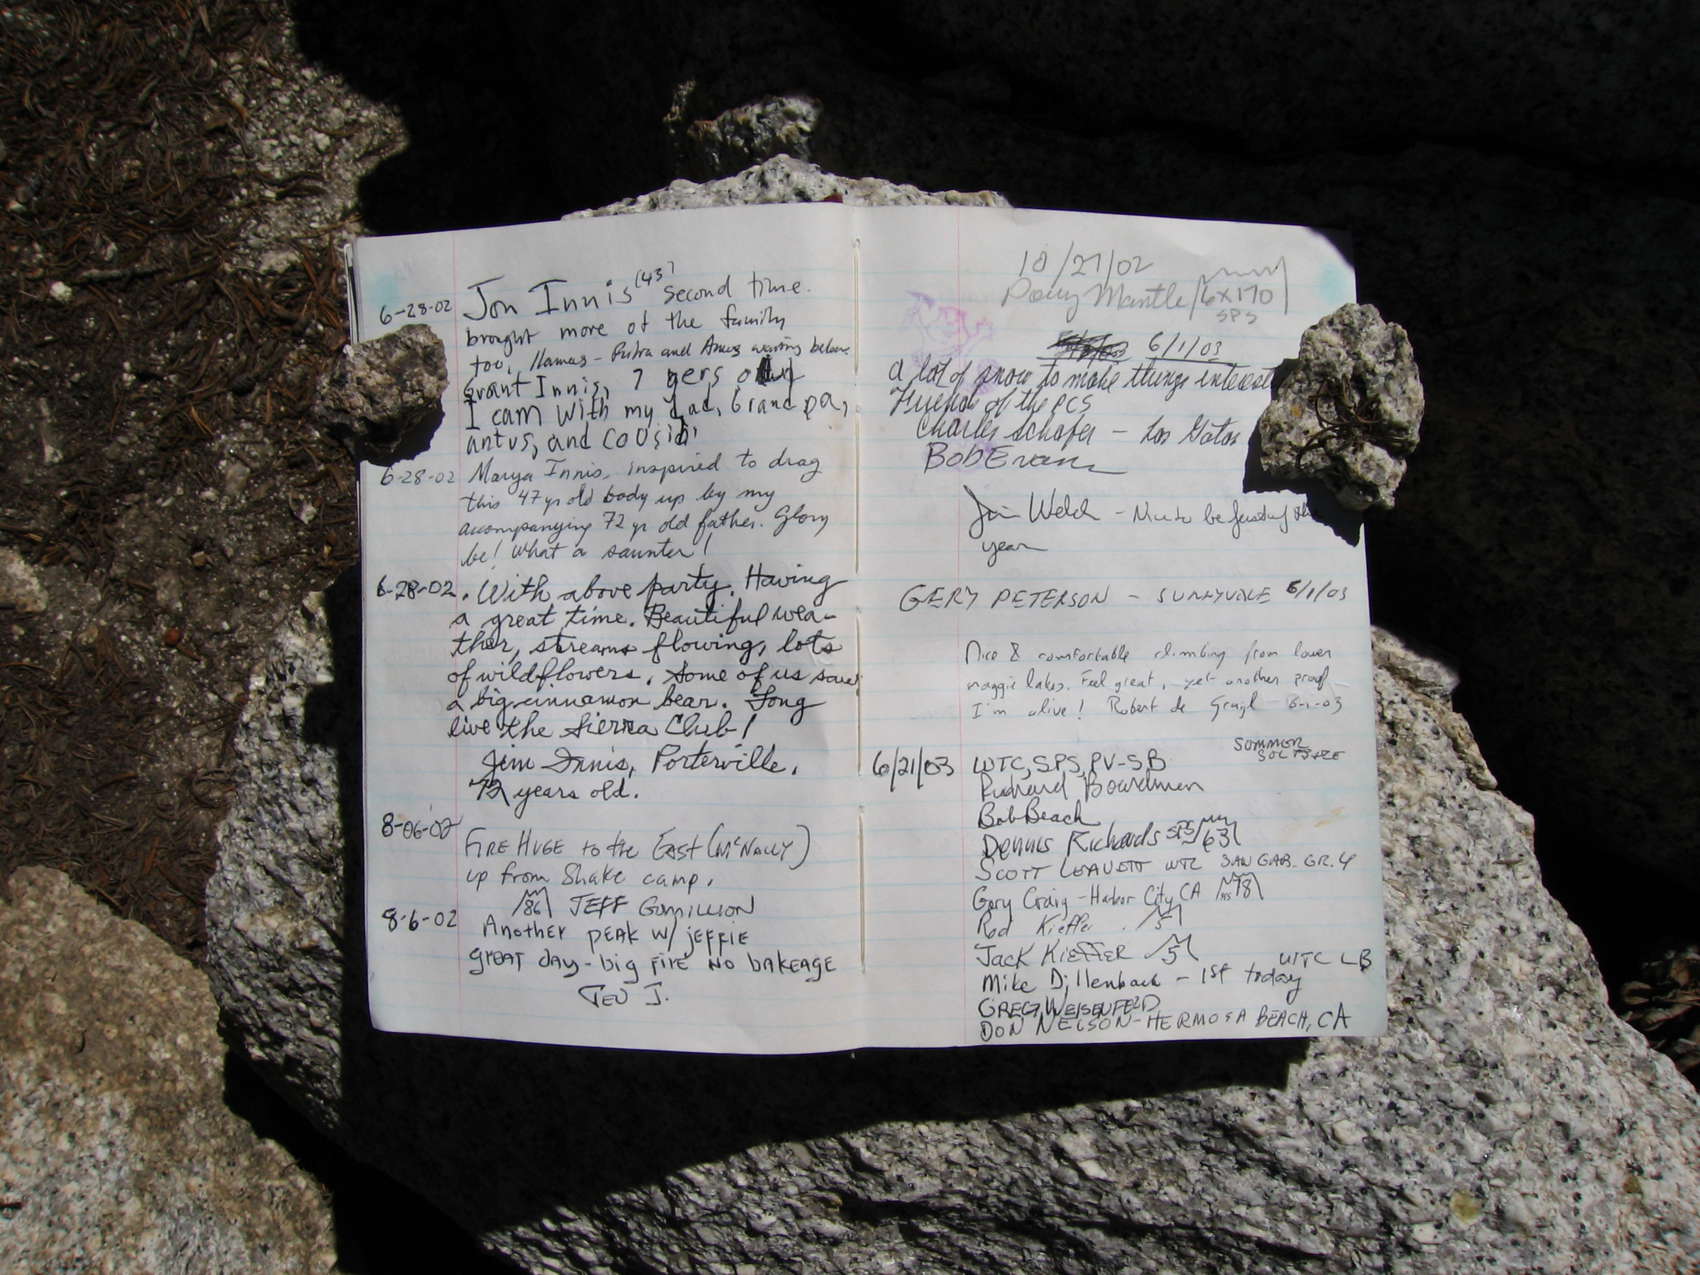 6-28-02 Jon Innis (43) second time.
brought more of the family
too, llamas - and Amos waiting below
Grant Innis, 7 yers old
I cam with my dad, Grandpa,
antus, and cousin
6-28-02 Marya Innis, inspired to drag
this 47 yr old body up by my
accompanying 72 yr old father. Glory
be! What a saunter!
6-28-02. With above party. Having
a great time. Beautiful wea-
ther, streams flowing, lots
of wildflowers. Some of us saw
a big cinnamon bear. Long
live the Sierra Club!
Jim Innis, Porterville,
72 years old.
8-06-02 FIRE HUGE to the EAST (McNALLY)
up from Shake camp.
86 JEFF GOMILLION
8-6-02 ANOTHER PEAK W/ JEFFIE
great day - big FIRE NO BAKEAGE
TED J.
10/21/02
Doug Mantle 6x170
SPS
6/1/03
A lot of snow to make things interest
Friends of the PCS
Charles Schafer - Los Gatos
Bob Evans
Jim Welch - Nice to be first of the
year
GERY PETERSON - SUNNYVALE 6/1/03
Nice & comfortable climbing from lower
maggie lakes. Feel great, yet another proof
I'm alive! Robert de 6-1-03
6/21/03 WTC, SPS, PV-SB SUMMER
SOLSTIZE
Richard Boardman
Bob Beach
Dennis Richards SPS 63
SCOTT LEAVETT WTC SAN GAB. GR. 4
Gary Craig - Harbor City, CA HS 78
Rod Kieffer 51
JACK KIEFFER 51 WTC LB
Mike Dillenback - 1st today
GREG WEISENFELD
DON NELSON - HERMOSA BEACH, CA